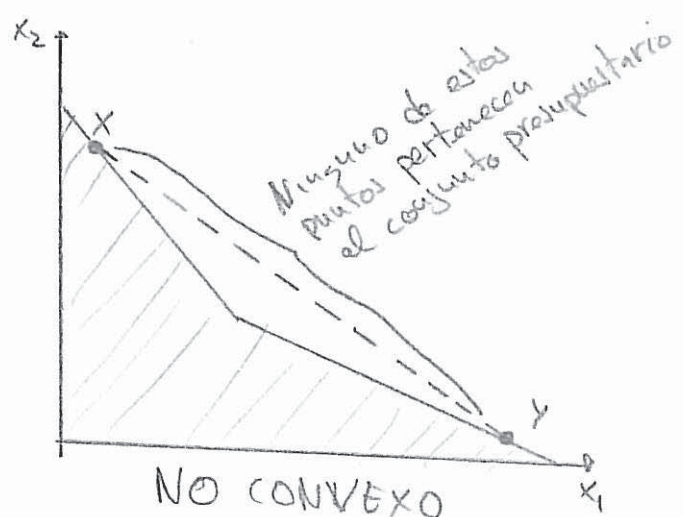 x₂
X
Ninguno de estos
puntos pertenecen
el conjunto presupuestario
y
NO CONVEXO
x₁